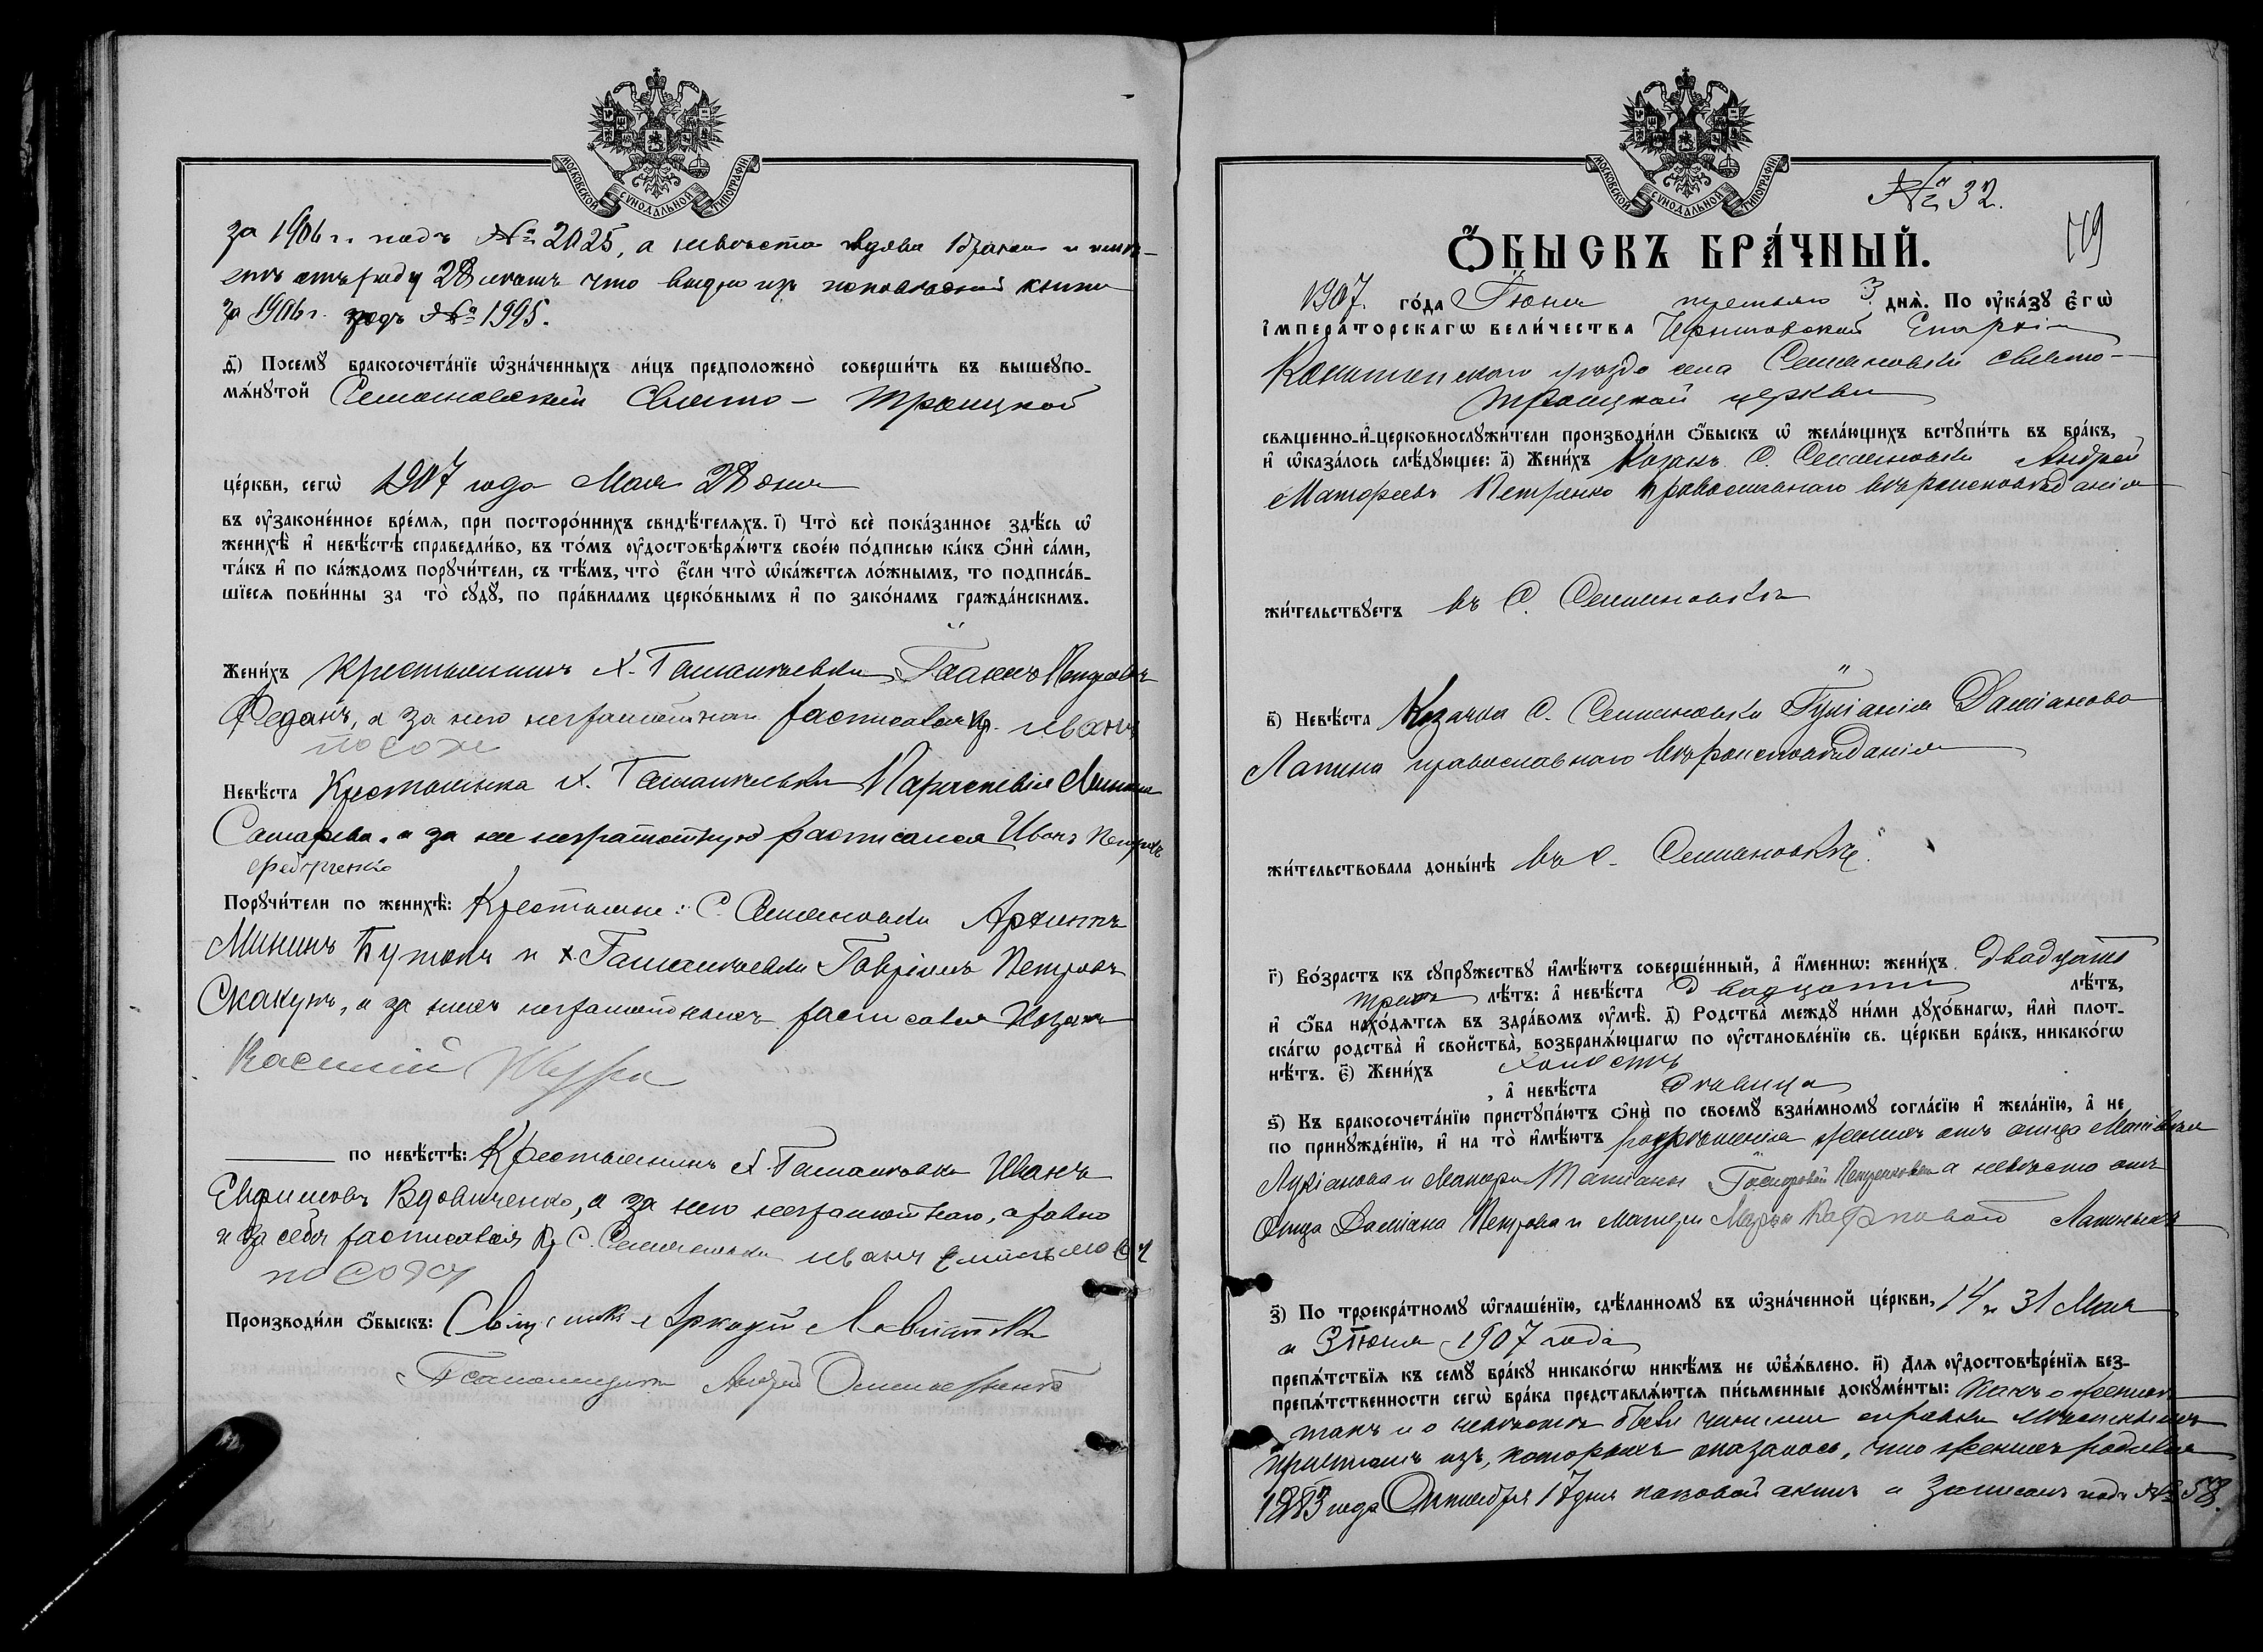 МОСКОВСКОЙ СѴНОДАЛЬНОЙ ТИПОГРАФІИ
за 1906 г. подъ № 2025, а невѣста вдова 1 бракомъ и имѣ-
етъ отъ роду 28 лѣтъ что видно изъ исповѣдной книги
за 1906 г. подъ № 1995.
д҃) Посемꙋ бракосочета́нїе ѡ҆зна́ченныхъ ли́цъ предположено̀ соверши́ть въ вышеꙋпо-
мѧ́нꙋтой Семеновской Свято - Троицкой
це́ркви, сегѡ̀ 1907 года Мая 28 дня
въ ᲂу҆законе́нное вре́мѧ, при посторо́ннихъ свидѣ́телѧхъ. і҃) Что̀ всѐ пока́занное здѣ́сь ѡ҆
женихѣ̀ и҆ невѣ́стѣ справедли́во, въ то́мъ ᲂу҆достовѣрѧ́ютъ свое́ю по́дписью ка́къ ѻ҆нѝ са́ми,
та́къ и҆ по ка́ждомъ порꙋчи́тели, съ тѣ́мъ, что̀ є҆́сли что̀ ѡ҆ка́жетсѧ ло́жнымъ, то подписа́в-
шїесѧ пови́нны за то̀ сꙋдꙋ̀, по пра́виламъ церко́внымъ и҆ по зако́намъ гражда́нскимъ.
Жени́хъ Крестьянинъ х. Петровъ
Феданъ, а за него неграмотнаго расписался Кр. иванъ
посохъ
Невѣ́ста Крестьянка х. Параскевія
а за нее неграмотную расписался Иванъ Петровъ
федорченко
Порꙋчи́тели по женихѣ̀: Крестьяне: С. Семеновки Архипъ
Мининъ и х. Гавріилъ Петровъ
Скакунъ, а за нихъ неграмотныхъ расписался Козакъ
Василий
по невѣ́стѣ: Крестьянинъ х. Иванъ
Ефимовъ Вдовиченко, а за него неграмотнаго, а равно
и за себя расписался Кр. С. Семеновки иванъ
посохъ
Производи́ли ѻ҆́быскъ: Священникъ Аркадій
Псаломщикъ Андрей
МОСКОВСКОЙ СѴНОДАЛЬНОЙ ТИПОГРАФІИ
№ 32.
79
Ѻ҆́БЫСКЪ БРА́ЧНЫЙ.
1907. го́да Іюня третьяго 3 днѧ̀. По ᲂу҆ка́зꙋ є҆гѡ̀
і҆мпера́торскагѡ вели́чества Черниговской Епархіи
Конотопскаго уѣзда села Семеновки свято-
троицкой церкви
свѧще́нно-и҆-церковнослꙋжи́тели производи́ли ѻ҆́быскъ ѡ҆ жела́ющихъ встꙋпи́ть въ бра́къ,
и҆ ѡ҆каза́лось слѣ́дꙋющее: а҃) Жени́хъ Козакъ С. Семеновки Андрей
Матфеевъ Петренко православнаго вѣроисповѣданія
жи́тельствꙋетъ въ С. Семеновкѣ
в҃) Невѣ́ста Козачка С. Семеновки Іуліанія Даміанова
Лапина православнаго вѣроисповѣданія
жи́тельствовала доны́нѣ въ С. Семеновкѣ.
г҃) Во́зрастъ къ сꙋпрꙋ́жествꙋ и҆мѣ́ютъ соверше́нный, а҆ и҆́меннѡ: жени́хъ двадцати
трехъ лѣ́тъ: а҆ невѣ́ста двадцати лѣ́тъ,
и҆ ѻ҆́ба нахо́дѧтсѧ въ здра́вомъ ᲂу҆мѣ̀. д҃) Родства̀ междꙋ̀ ни́ми дꙋхо́внагѡ, и҆лѝ плот-
ска́гѡ родства̀ и҆ свойства̀, возбранѧ́ющагѡ по ᲂу҆становле́нїю св. це́ркви бра́къ, никако́гѡ
нѣ́тъ. є҃) Жени́хъ холостъ
, а҆ невѣ́ста дѣвица
ѕ҃) Къ бракосочета́нїю пристꙋпа́ютъ ѻ҆нѝ по своемꙋ̀ взаи́мномꙋ согла́сїю и҆ жела́нїю, а҆ не
по принꙋжде́нїю, и҆ на то̀ и҆мѣ́ютъ разрѣшенія женихъ отъ отца Матвѣя
Лукіанова и Матери Татіаны а невѣста отъ
Отца Даміана Петрова и матери Карповой Лапиныхъ
з҃) По троекра́тномꙋ ѡ҆глаше́нїю, сдѣ́ланномꙋ въ ѡ҆зна́ченной це́ркви, 14 и 31 Мая
и 3 Іюня 1907 года
препѧ́тствїѧ къ семꙋ̀ бра́кꙋ никако́гѡ никѣ́мъ не ѡ҆б̾ѧ́влено. и҃) Длѧ ᲂу҆достовѣре́нїѧ без-
препѧ́тственности сегѡ̀ бра́ка представлѧ́ютсѧ пи́сьменные докꙋме́нты: какъ о женихѣ
такъ и о невѣстѣ были чинимы справки мѣстнымъ
причтомъ изъ, которыхъ оказалось, что женихъ родился
1883 года Октября 17 дня каковой актъ и записанъ подъ № 58.